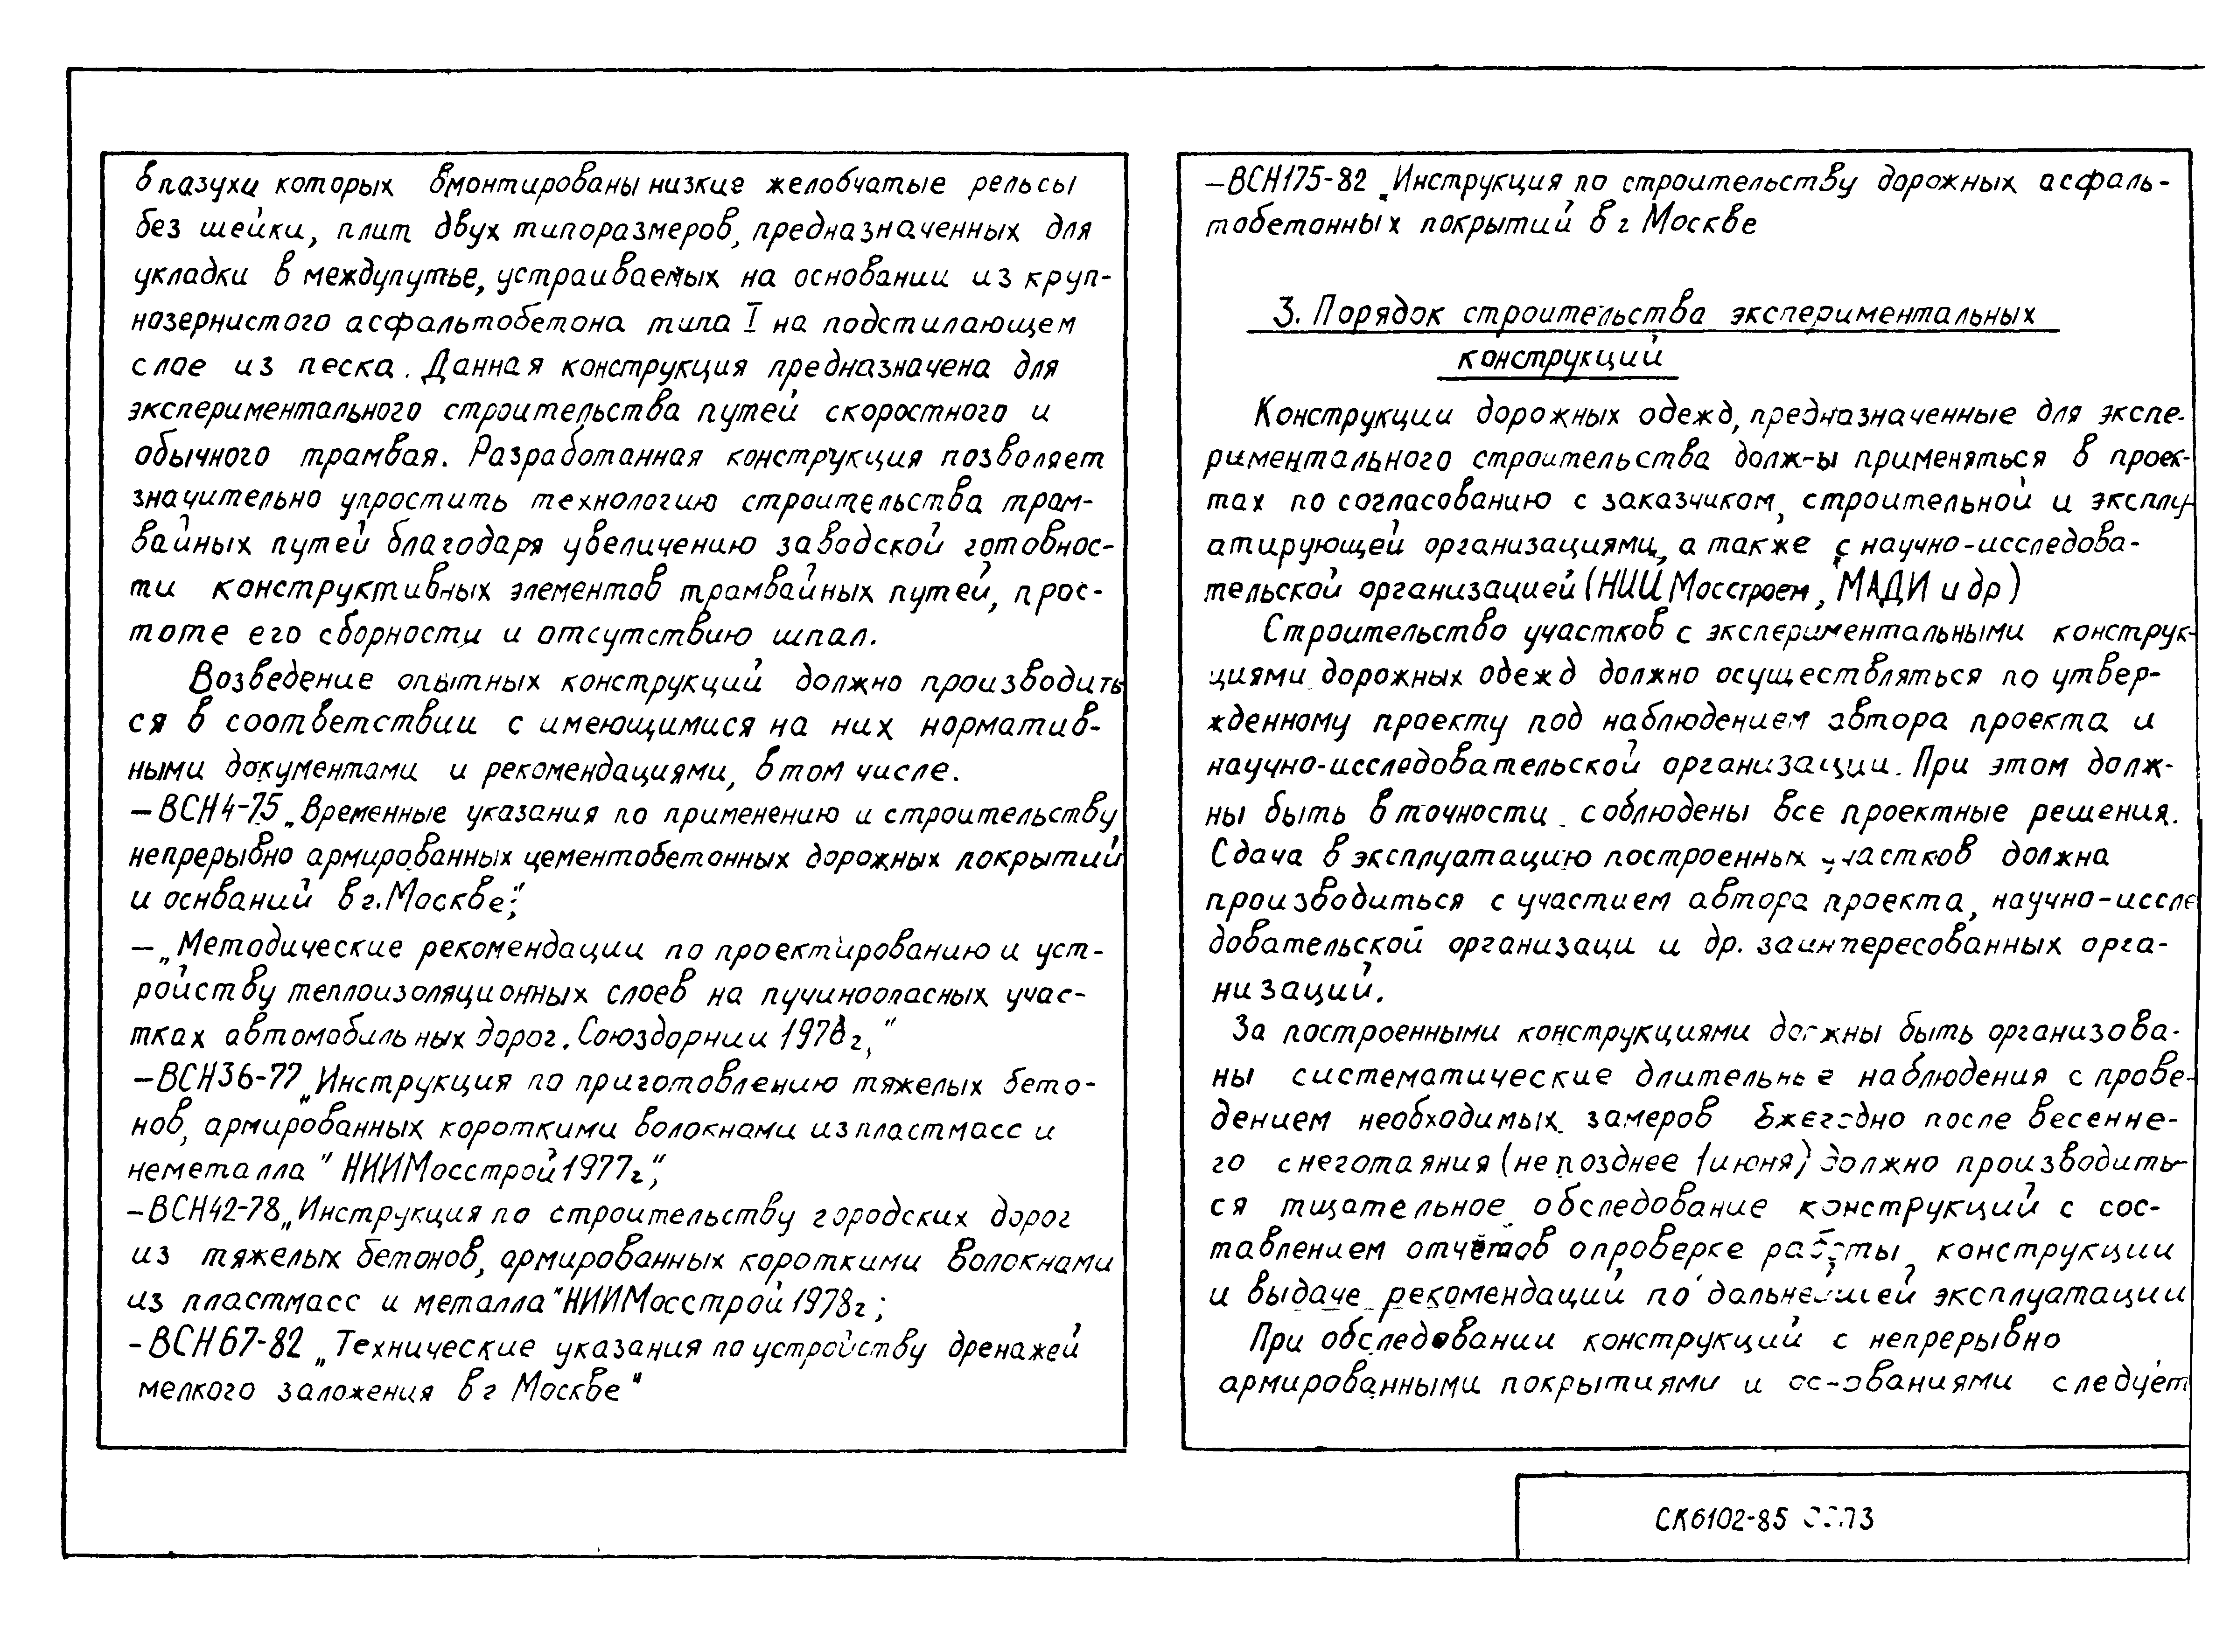 в пазухи которых вмонтированы низкие желобчатые рельсы
без шейки, плит двух типоразмеров, предназначенных для
укладки в междупутье, устраиваемых на основании из круп-
нозернистого асфальтобетона типа I на подстилающем
слое из песка. Данная конструкция предназначена для
экспериментального строительства путей скоростного и
обычного трамвая. Разработанная конструкция позволяет
значительно упростить технологию строительства трам-
вайных путей благодаря увеличению заводской готовнос-
ти конструктивных элементов трамвайных путей, прос-
тоте его сборности и отсутствию шпал.
Возведение опытных конструкций должно производить
ся в соответствии с имеющимися на них норматив-
ными документами и рекомендациями, в том числе.
—ВСН4-75 „Временные указания по применению и строительству
непрерывно армированных цементобетонных дорожных покрытий
и оснваний в г. Москве";
—„Методические рекомендации по проектированию и уст-
ройству теплоизоляционных слоев на пучиноопасных учас-
тках автомобильных дорог. Союздорнии 1978г,"
—ВСН36-77 „Инструкция по приготовлению тяжелых бето-
нов, армированных короткими волокнами из пластмасс и
неметалла" НИИМосстрой 1977г",
—ВСН42-78 „Инструкция по строительству городских дорог
из тяжелых бетонов, армированных короткими волокнами
из пластмасс и металла" НИИМосстрой 1978г;
-ВСН67-82 „Технические указания по устройству дренажей
мелкого заложения в г Москве"
—ВСН175-82 „Инструкция по строительству дорожных асфаль-
тобетонных покрытий в г Москве
3. Порядок строительства экспериментальных
конструкций
Конструкции дорожных одежд, предназначенные для экспе-
риментального строительства должны применяться в проек-
тах по согласованию с заказчиком, строительной и эксплу-
атирующей организациями, а также с научно-исследова-
тельской организацией (НИИ Мосстроем, МАДИ и др)
Строительство участков с экспериментальными конструк-
циями дорожных одежд должно осуществляться по утвер-
жденному проекту под наблюдением автора проекта и
научно-исследовательской организации. При этом долж-
ны быть в точности соблюдены все проектные решения.
Сдача в эксплуатацию построенных участков должна
производиться с участием автора проекта, научно-иссле
довательской организаци и др. заинтересованных орга-
низаций.
За построенными конструкциями должны быть организова-
ны систематические длительные наблюдения с прове-
дением необходимых замеров Ежегодно после весенне-
го снеготаяния (не позднее 1 июня) должно производить-
ся тщательное обследование конструкций с сос-
тавлением отчетов о проверке работы конструкции
и выдаче рекомендаций по дальнейшей эксплуатации
При обследовании конструкций с непрерывно
армированными покрытиями и основаниями следует
СК6102-85